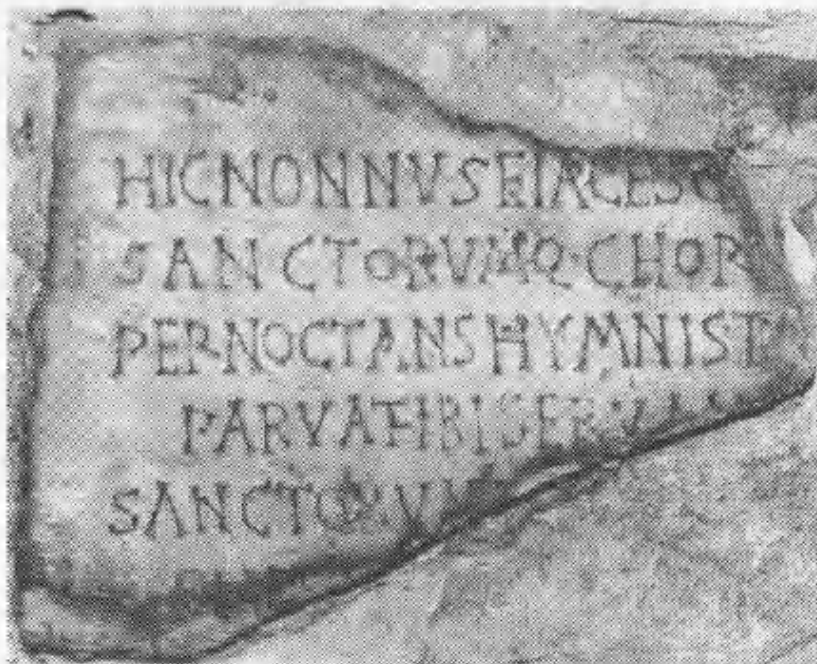 HIC NONNVS EIACES
SANCTORVMQ·CHOR
PERNOCTANS HYMNIS T
PARVA TIBI SERV
SANCTORVM